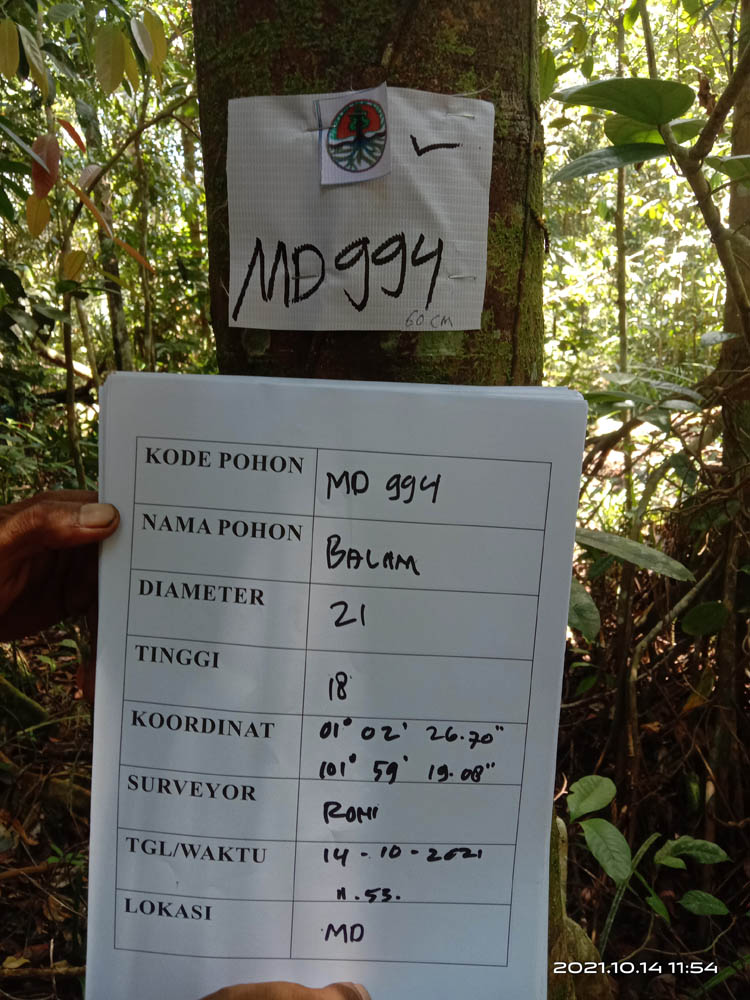 MD 994
60 CM
KODE POHON MD 994
NAMA POHON BALAM
DIAMETER 21
TINGGI 18
KOORDINAT 01° 02' 26.70"
101° 59' 19.08"
SURVEYOR ROMI
TGL/WAKTU 14-10-2021
11.53.
LOKASI MD
2021.10.14 11:54